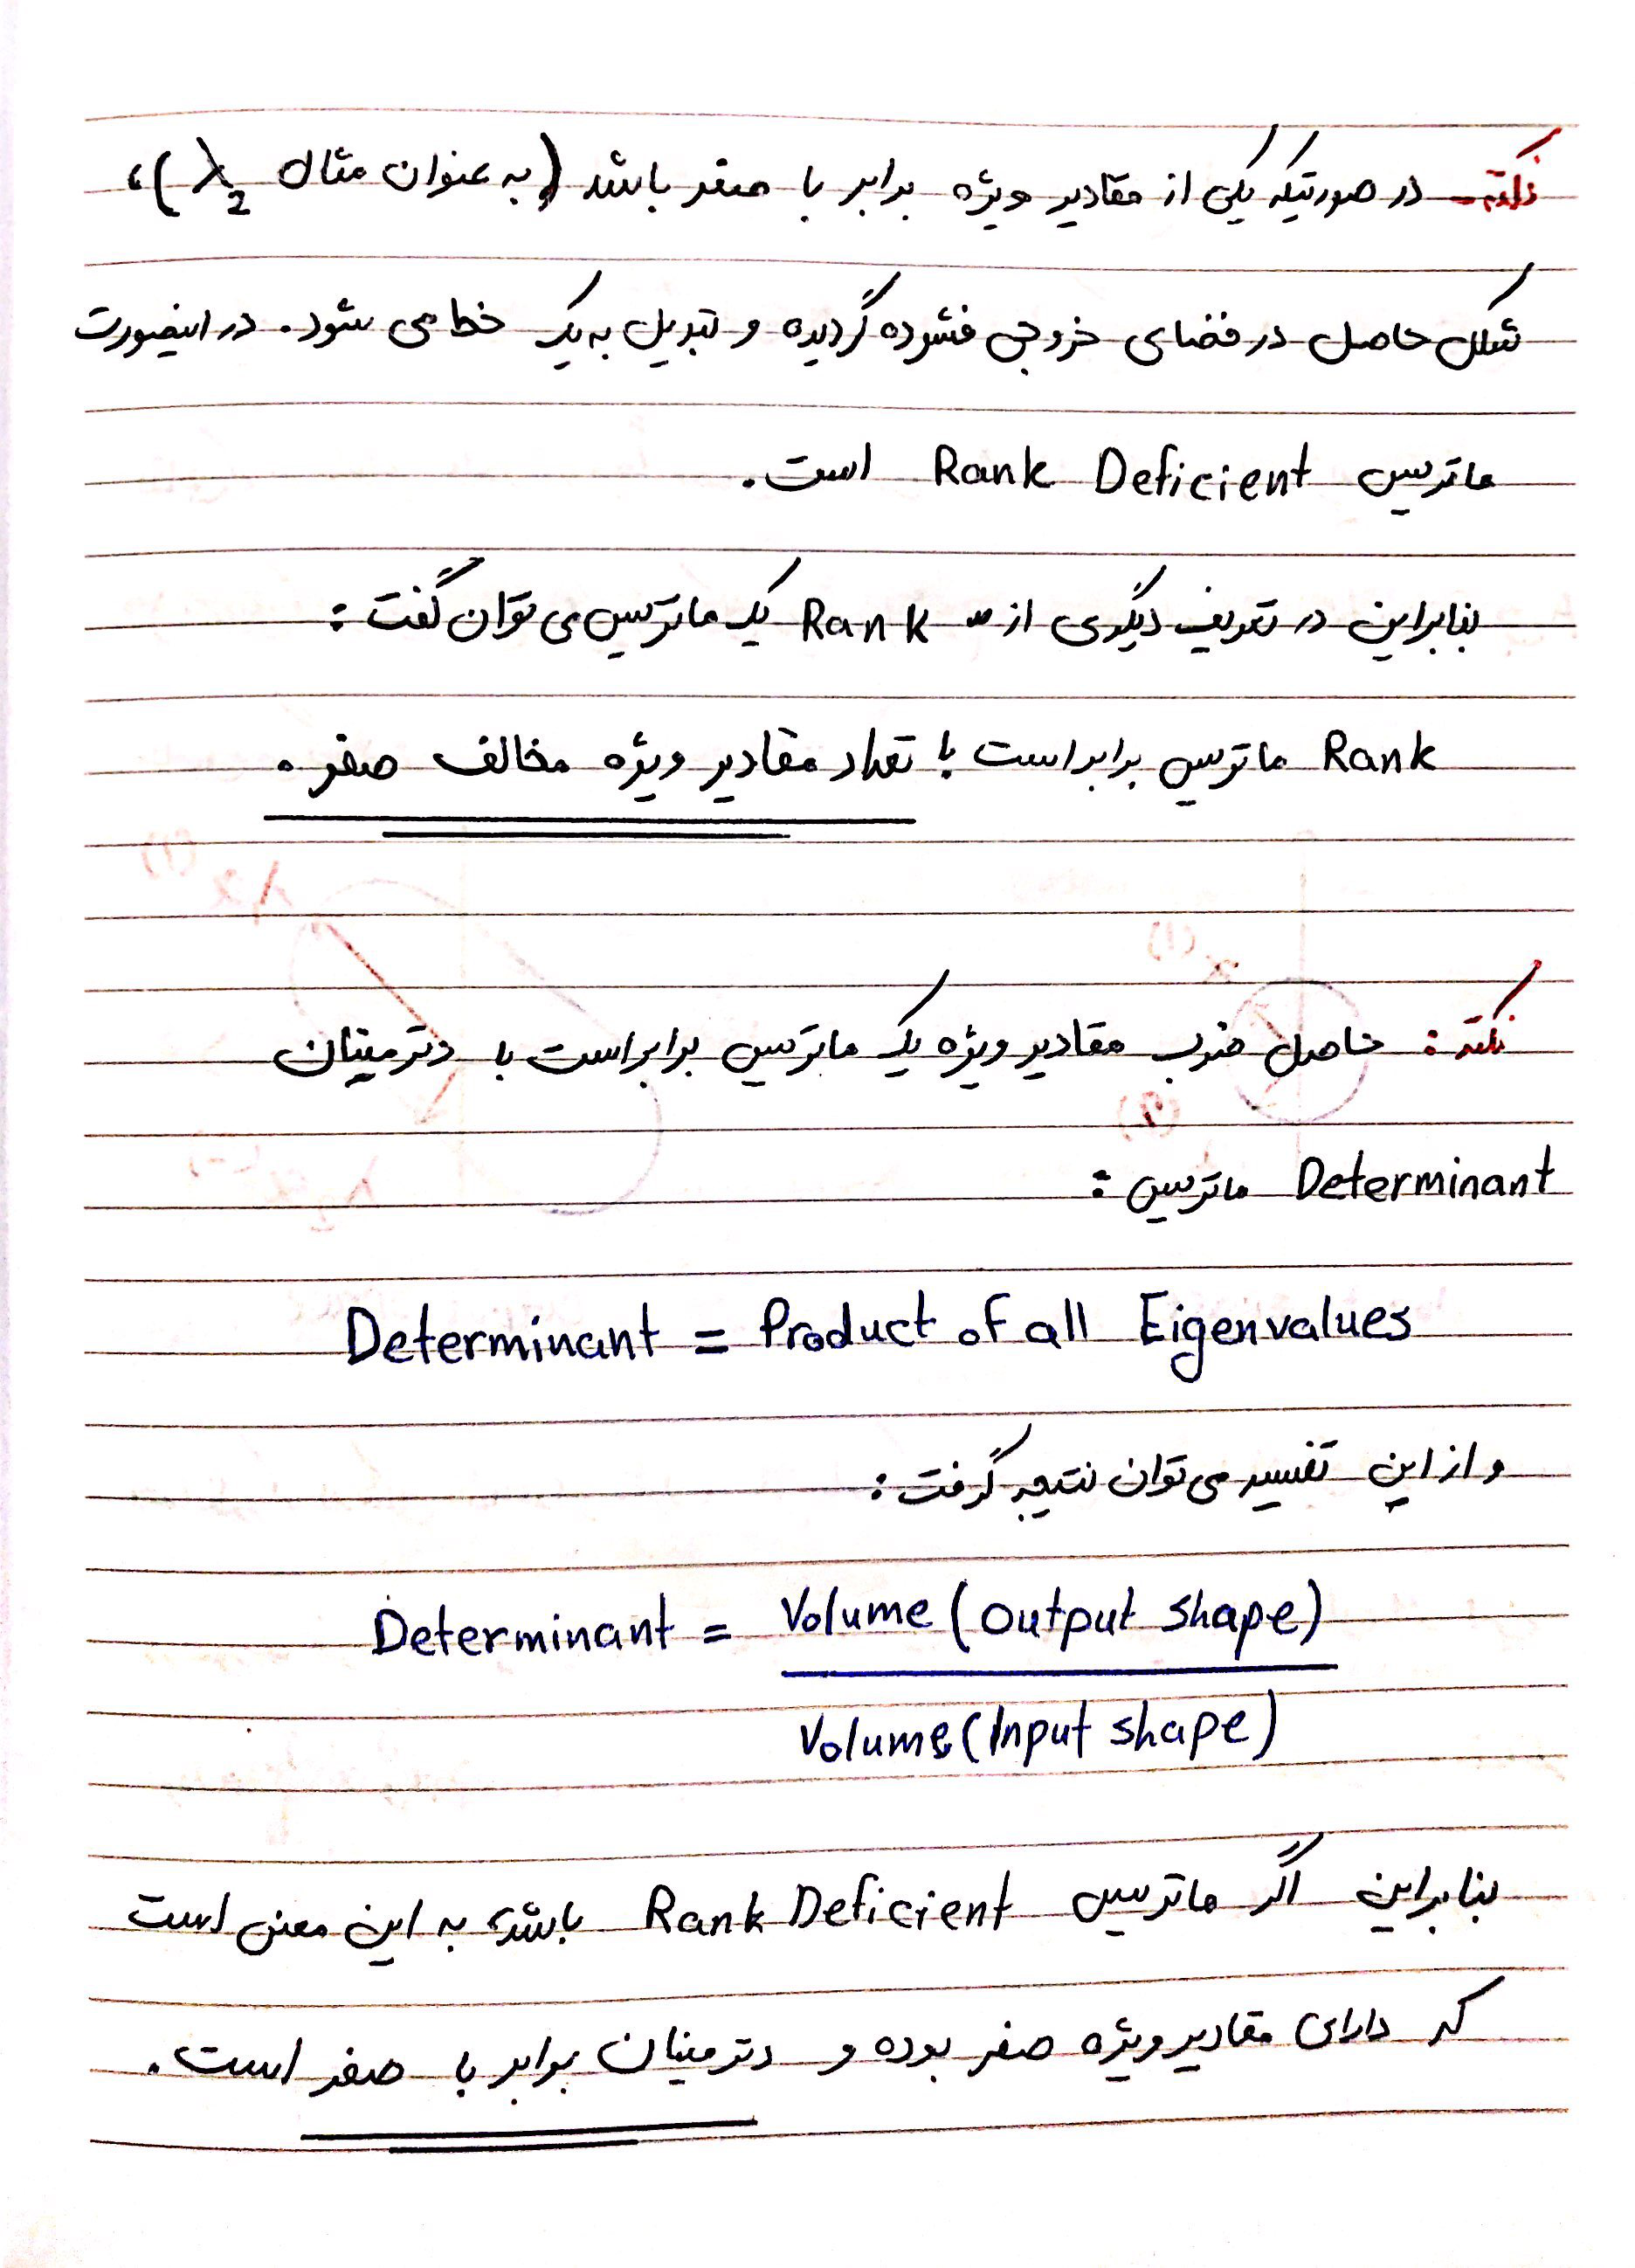 نکته- در صورتیکه یکی از مقادیر ویژه برابر با صفر باشد (به عنوان مثال λ₂)،
شکل حاصل در فضای خروجی فشرده گردیده و تبدیل به یک خط می شود. در اینصورت
ماتریس Rank Deficient است.
بنابراین در تعریف دیگری از Rank یک ماتریس می توان گفت:
Rank ماتریس برابر است با تعداد مقادیر ویژه مخالف صفر.
نکته: حاصل ضرب مقادیر ویژه یک ماتریس برابر است با دترمینان
Determinant ماتریس:
Determinant = Product of all Eigenvalues
و از این تفسیر می توان نتیجه گرفت:
Determinant = Volume (Output shape)
Volume (Input shape)
بنابراین اگر ماتریس Rank Deficient باشد، به این معنی است
که دارای مقادیر ویژه صفر بوده و دترمینان برابر با صفر است.